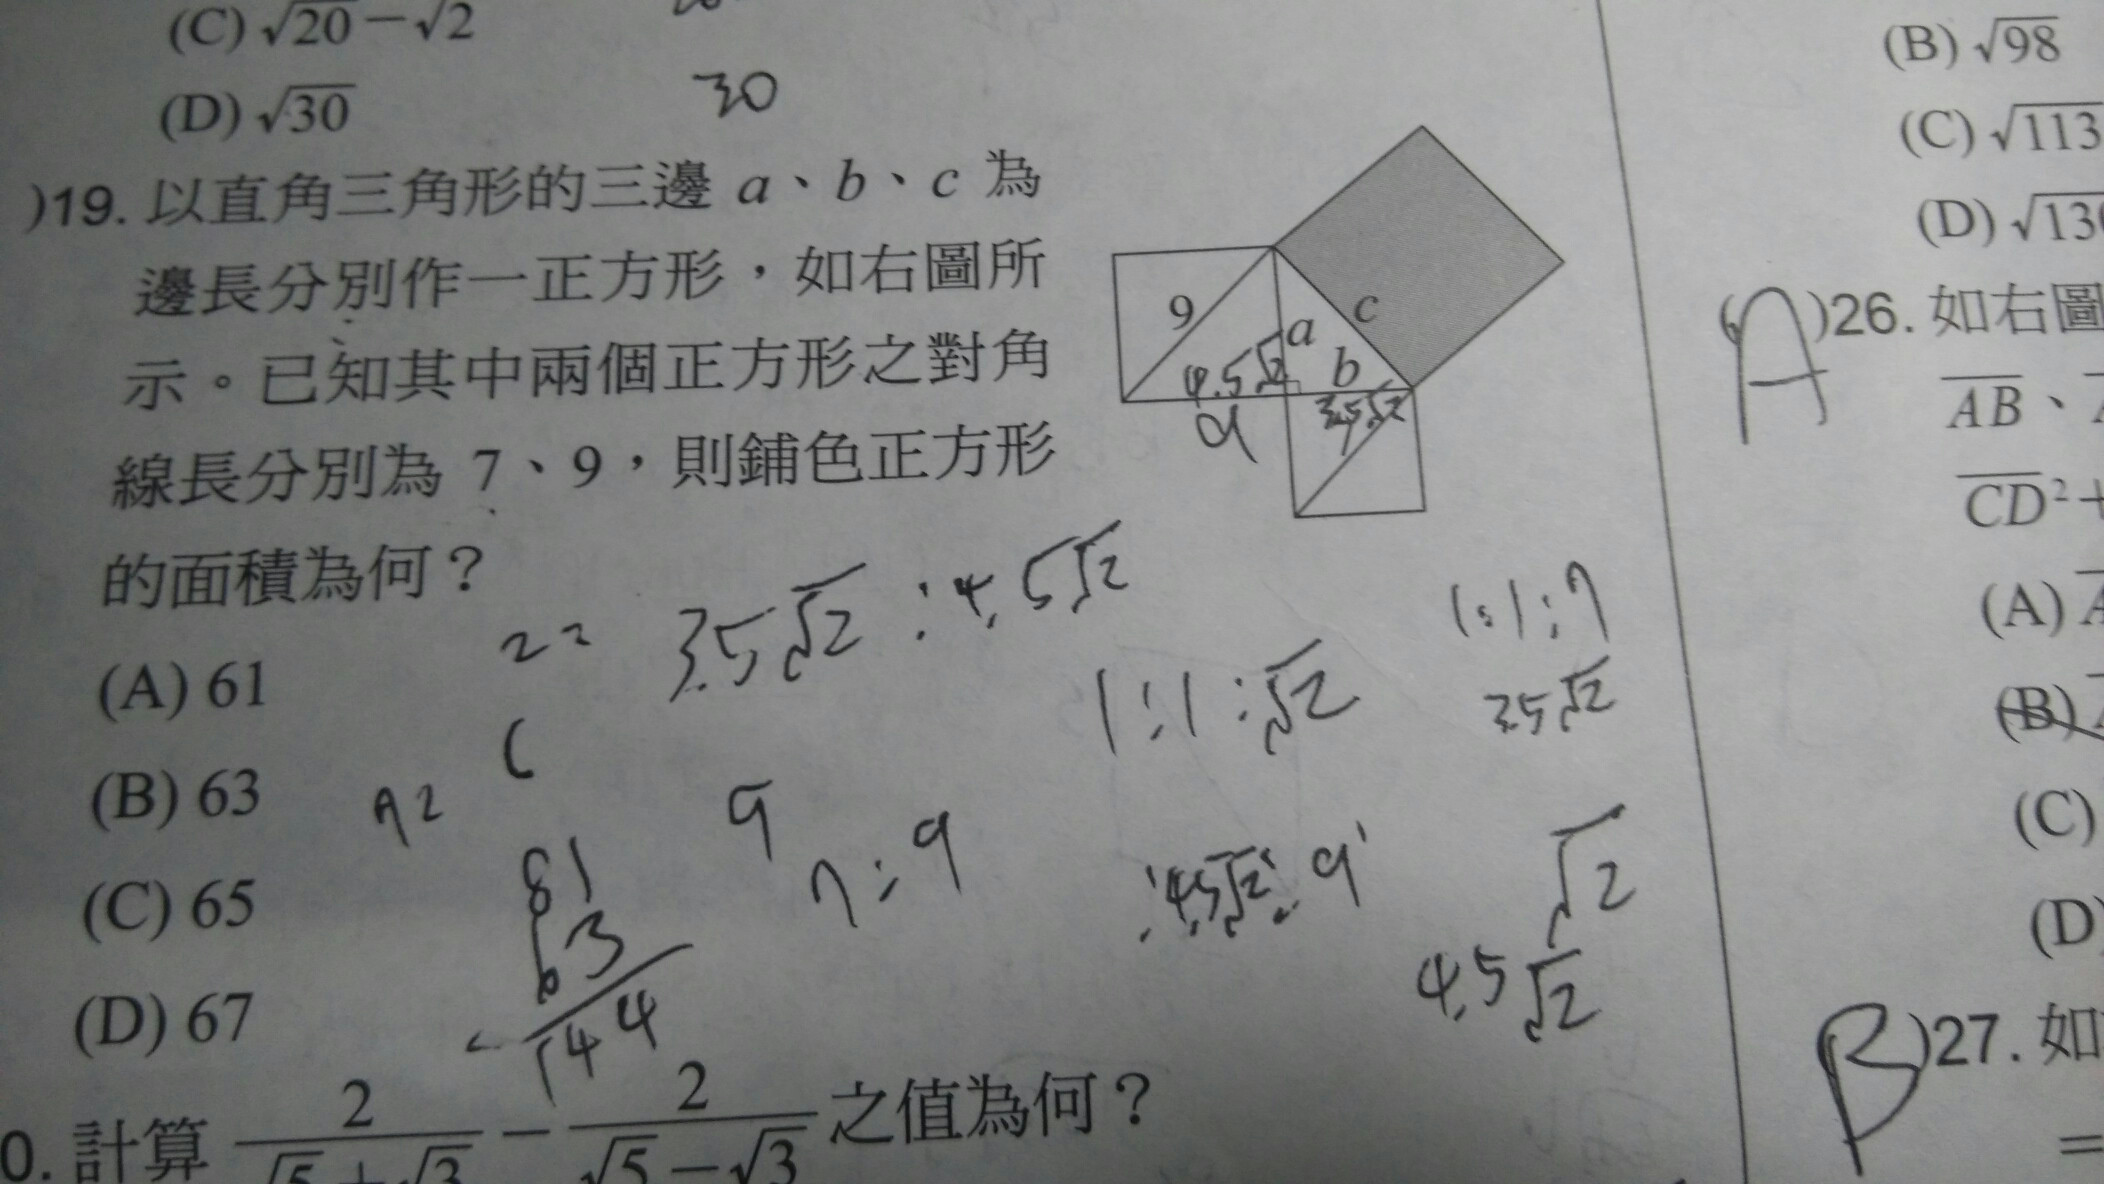 (C) √20 − √2
(D) √30
30
)19. 以直角三角形的三邊 a、b、c 為
邊長分別作一正方形，如右圖所
示。已知其中兩個正方形之對角
線長分別為 7、9，則鋪色正方形
的面積為何？
(A) 61
(B) 63
(C) 65
(D) 67
9
a
c
b
4.5√2
3.5√2
a
7
3.5√2 : 4.5√2
1:1:√2
1:1:7
3.5√2
9
7:9
4.5√2: 9
√2
4.5√2
81
63
144
0. 計算 2/(√5+√3) − 2/(√5−√3) 之值為何？
(B) √98
(C) √113
(D) √130
(A)26. 如右圖
AB、
CD²+
(A)
(B)
(C)
(D)
B)27. 如
=